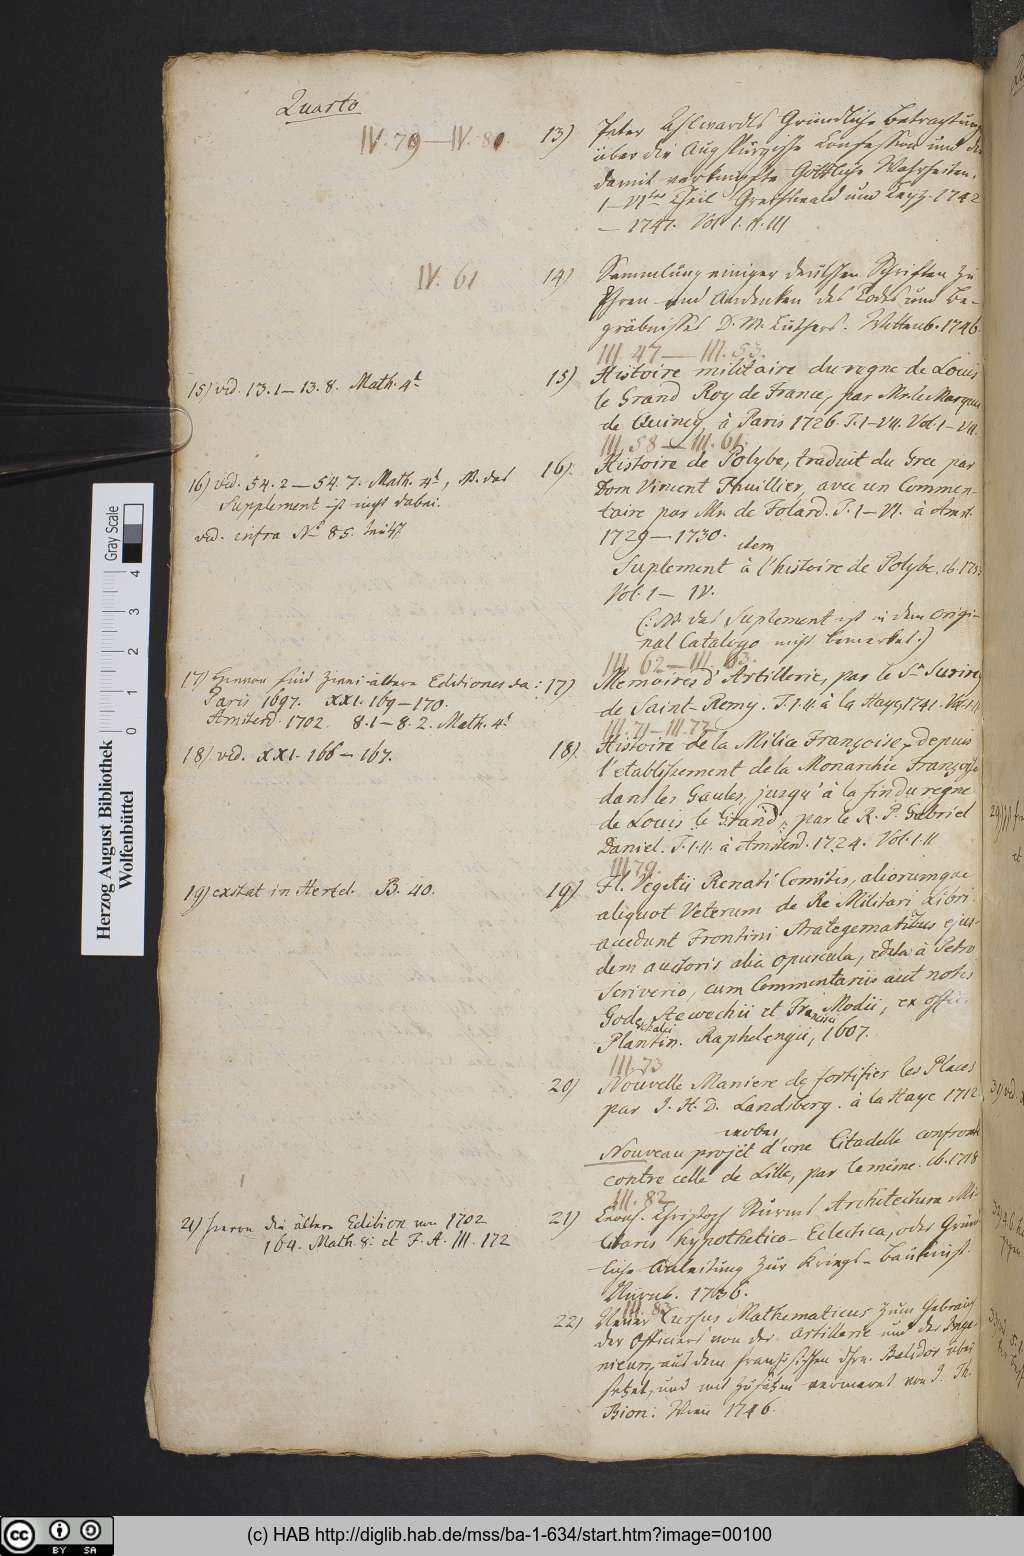 Quarto
IV. 79 — IV. 81.
13) Peter Ahlwardts Gründliche Betrachtung
über die Augspurgische Confession und die
damit verknüpfte Göttliche Wahrheiten.
1 — Theil Greifswald und Leipz. 1742
— 1747. Vol. I. II. III
IV. 61
14) Sammlung einiger deutschen Schriften zu
Ehren und Andenken des Todes und Be-
gräbnisses D. M. Luthers. Wittenb. 1746.
III 47 — III. 53.
15) vid. 13. 1 — 13. 8. Math. 4t.
15) Histoire militaire du regne de Louis
le Grand Roy de France, par Mr. le Marquis
de Quincy, à Paris 1726. T. I–VII. Vol. I–VII.
III. 58 — III. 61.
16) vid. 54. 2 — 54. 7. Math. 4t, NB. das
Supplement ist nicht dabei.
vid. infra No 85.
16) Histoire de Polybe, traduit du Grec par
Dom Vincent Thuillier, avec un Commen-
taire par Mr. de Folard. T. I – VI. à Amst.
1729 — 1730.
idem
Suplement à l'histoire de Polybe. ib.
Vol. I — IV.
(: NB. das Suplement ist in dem origi-
nal Catalogo nicht bemerket :)
III 62 — III. 63.
17) Hiervon sind zwei ältere Editiones da:
Paris 1697. XXI. 169 — 170.
Amsterd. 1702. 8. 1 — 8. 2. Math. 4t.
17) Memoires d'Artillerie, par le Sr Surirey
de Saint-Remy. T. I. II. à la Haye 1741. Vol. I. II
III. 71 — III. 72
18) vid. XXI. 166 — 167.
18) Histoire de la Milice Françoise, depuis
l'etablissement de la Monarchie Françoise
dans les Gaules, jusqu'à la fin du regne
de Louis le Grand, par le R. P. Gabriel
Daniel. T. I. II. à Amsterd. 1724. Vol. I. II
III 79.
19) exstat in Hertel. B. 40.
19) Fl. Vegetii Renati Comitis, aliorumque
aliquot Veterum de Re Militari Libri
accedunt Frontini Strategematibus ejus-
dem auctoris alia opuscula, edita à Petro
Scriverio, cum Commentariis aut notis
Godeschalci Stewechii et Francisci Modii, ex offic.
Plantin. Raphelengii, 1607.
III. 73
20) Nouvelle Maniere de fortifier les Places
par J. H. D. Landsberg. à la Haye 1712
Nouveau projèt d'une Citadelle confronté
contre celle de Lille, par le même. ib. 1718
III. 82
21) hiervon die ältere Edition von 1702
164. Math. 8. et F. A. III. 172
21) Leonh. Christoph Sturms Architectura Mi-
litaris hypothetico-Eclectica, oder Gründ-
liche Anleitung zur Kriegs-Baukunst.
Nürnb. 1736.
III. 83
22) Neuer Cursus Mathematicus zum Gebrauch
der Officiers von der Artillerie und der Inge-
nieurs, aus dem französischen Hrn. Belidor über
setzet, und mit Zusätzen vermehret von J. Th.
Bion. Wien 1746
Herzog August Bibliothek
Wolfenbüttel
Gray Scale
0 1 2 3 4
cc BY SA
(c) HAB http://diglib.hab.de/mss/ba-1-634/start.htm?image=00100